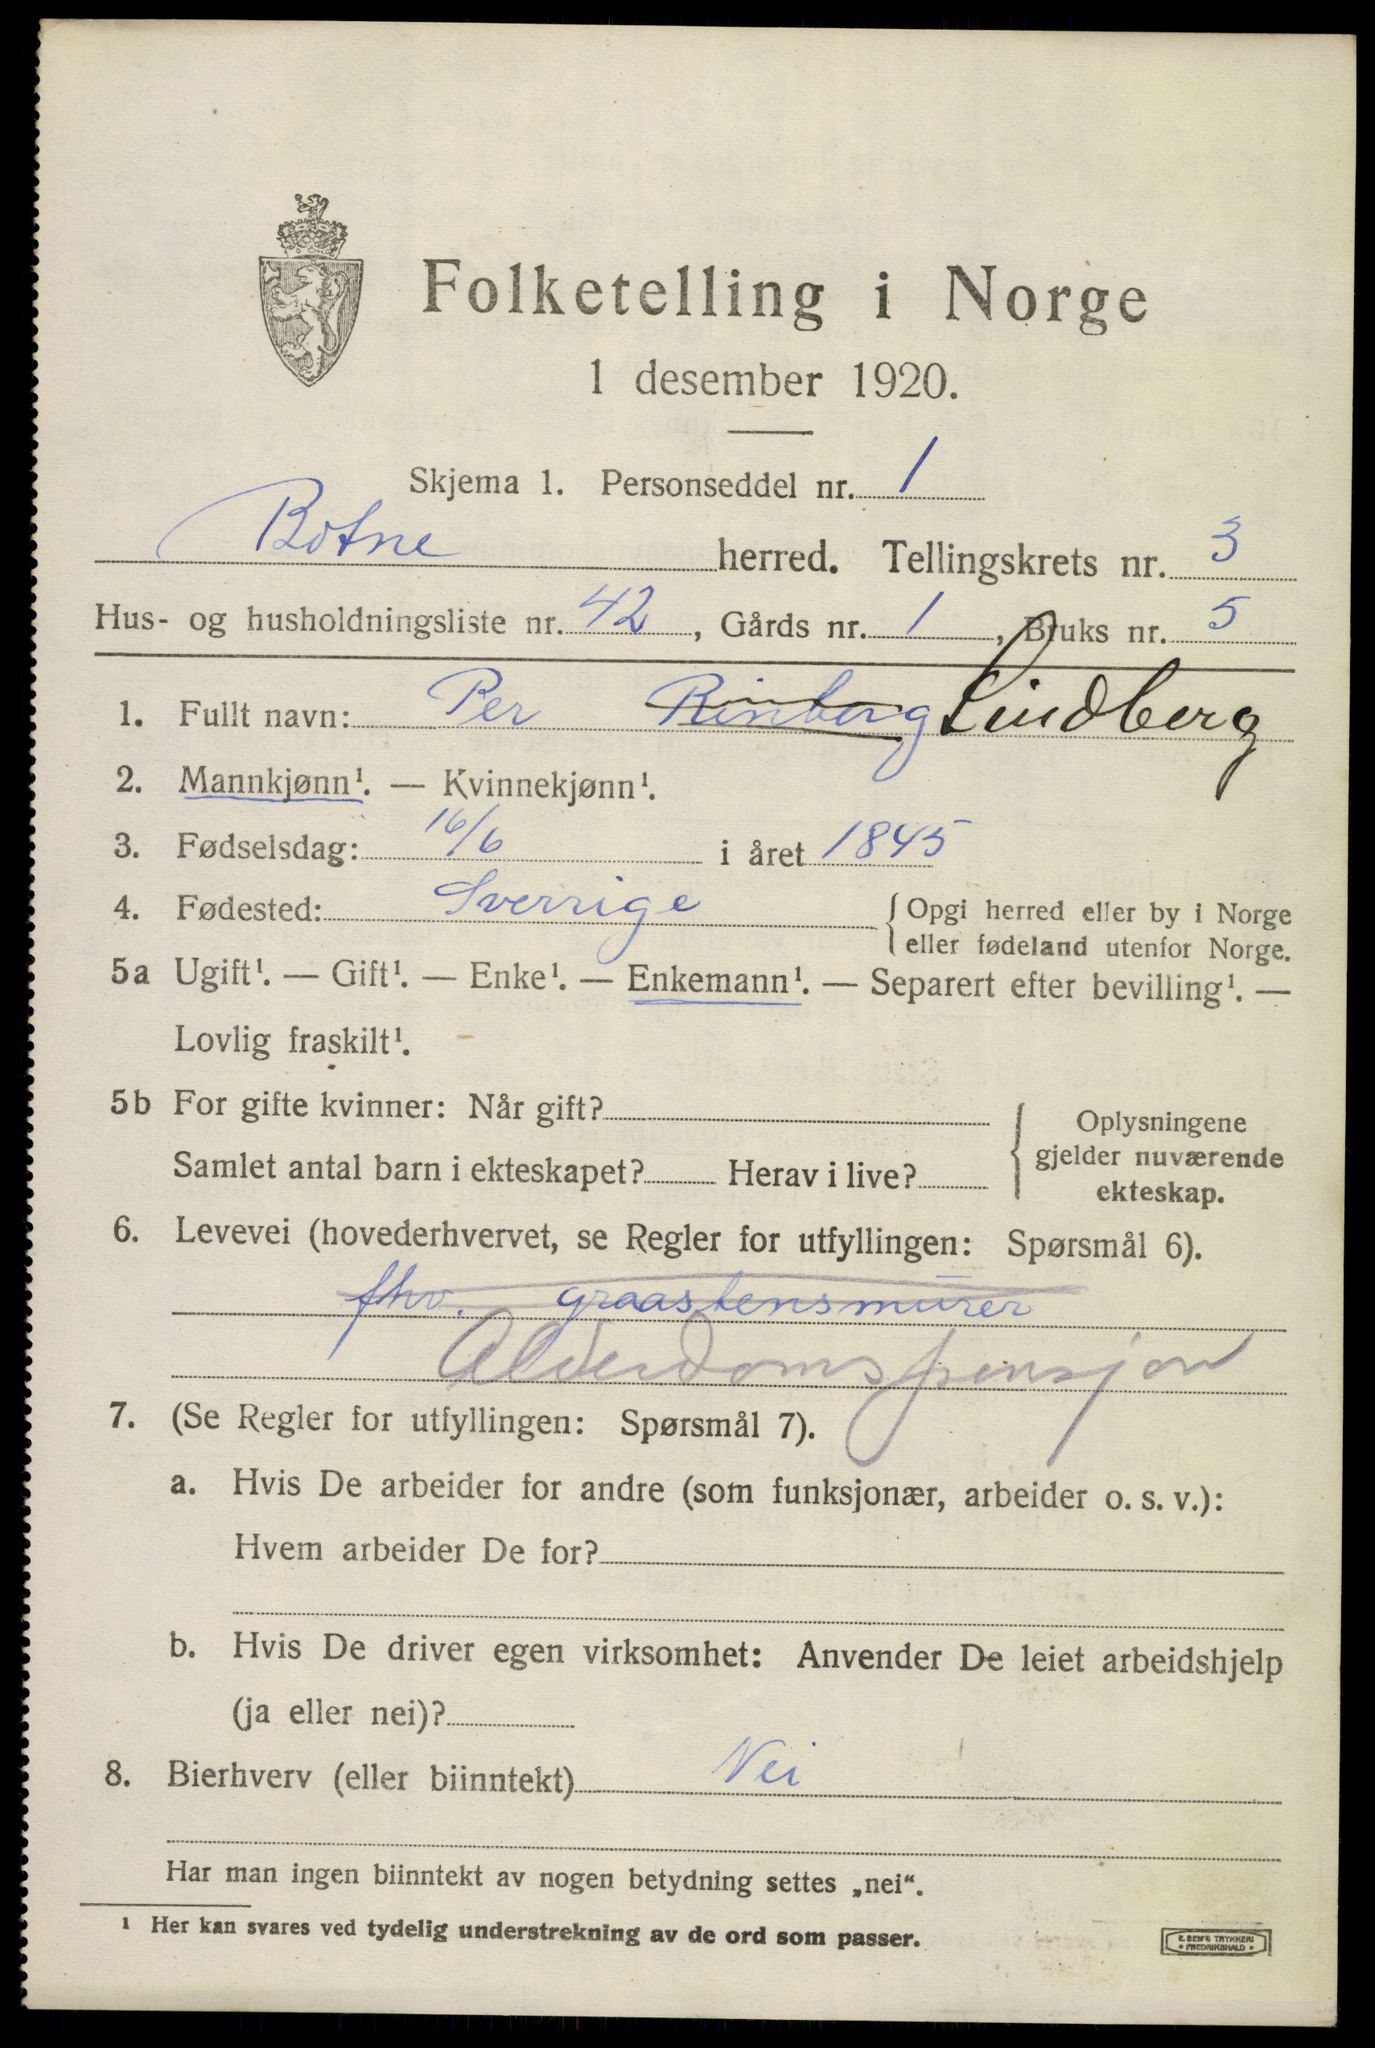 Folketelling i Norge
1 desember 1920.
Skjema 1. Personseddel nr. 1
Botne herred. Tellingskrets nr. 3
Hus- og husholdningsliste nr. 42, Gårds nr. 1, Bruks nr. 5
1. Fullt navn: Per Rinberg Lindberg
2. Mannkjønn¹. — Kvinnekjønn¹.
3. Fødselsdag: 16/6 i året 1845
4. Fødested: Sverrige { Opgi herred eller by i Norge
eller fødeland utenfor Norge.
5a Ugift¹. — Gift¹. — Enke¹. — Enkemann¹. — Separert efter bevilling¹. —
Lovlig fraskilt¹.
5b For gifte kvinner: Når gift?
Samlet antal barn i ekteskapet? Herav i live?
{ Oplysningene
gjelder nuværende
ekteskap.
6. Levevei (hovederhvervet, se Regler for utfyllingen: Spørsmål 6).
fhv. graastensmurer
Alderdomspensjon
7. (Se Regler for utfyllingen: Spørsmål 7).
a. Hvis De arbeider for andre (som funksjonær, arbeider o. s. v.):
Hvem arbeider De for?
b. Hvis De driver egen virksomhet: Anvender De leiet arbeidshjelp
(ja eller nei)?
8. Bierhverv (eller biinntekt) Nei
Har man ingen biinntekt av nogen betydning settes „nei“.
¹ Her kan svares ved tydelig understrekning av de ord som passer.
E. SEM'S TRYKKERI
• FREDRIKSHALD •